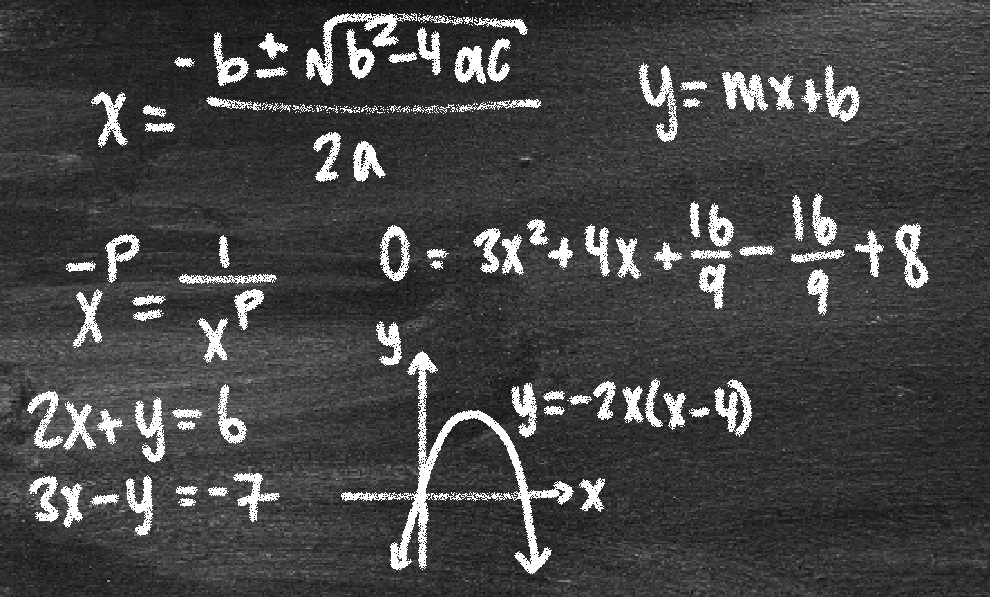 x = (-b ± √(b² - 4ac)) / 2a
y = mx + b
x^-p = 1 / x^p
0 = 3x² + 4x + 16/9 - 16/9 + 8
2x + y = 6
3x - y = -7
y
y = -2x(x - 4)
x